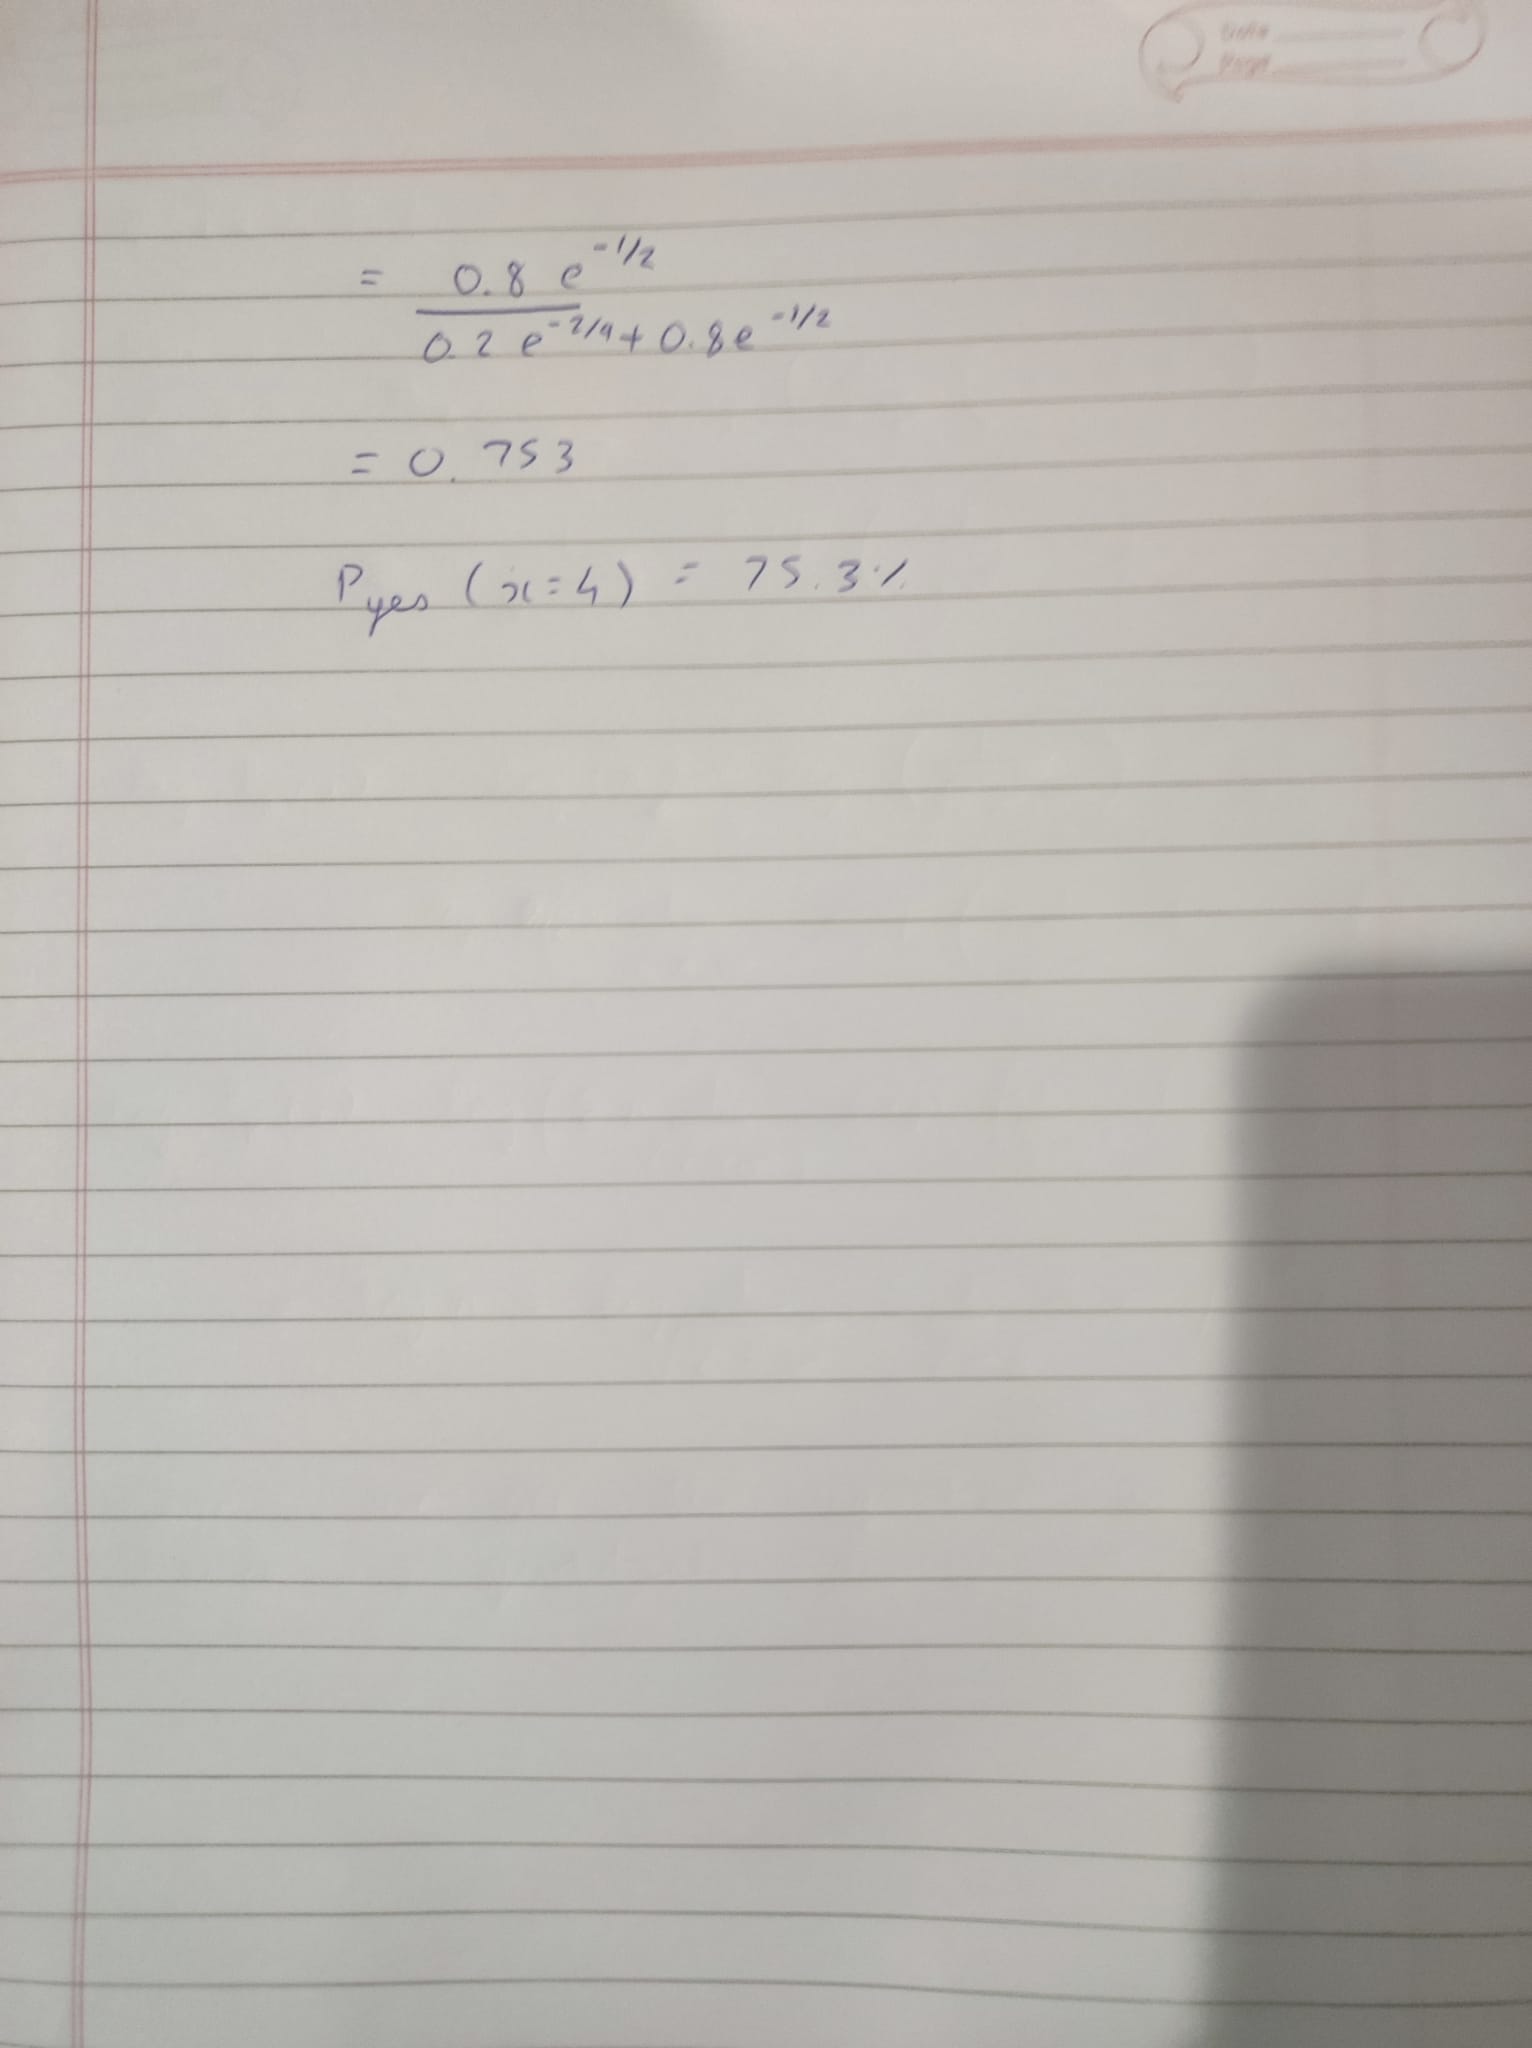 Date
Page
= 0.8 e^-1/2
0.2 e^-2/9 + 0.8e^-1/2
= 0.753
Pyes (x=4) = 75.3%